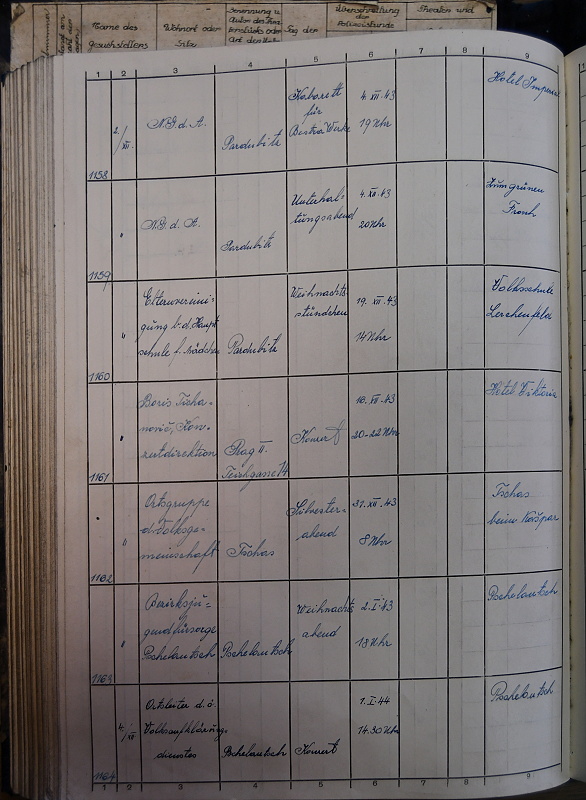 Name des
Gesuchstellers
Wohnort oder
Sitz
Benennung u.
Autor des
Art der
Tag der
Überschreitung
der
Polizeistunde
Theater und
1 2 3 4 5 6 7 8 9
1158
2./XII.
N.G.d.A.
Pardubitz
Kabarett
für
Werke
4. XII. 43
19 Uhr
Hotel Imperial
1159
"
N.G.d.A.
Pardubitz
Unterhal-
tungsabend
4. XII. 43
20 Uhr
Zum grünen
Frosch
1160
"
Elternverei-
gung b. d. Haupt
schule f. Mädchen
Pardubitz
Weihnachts-
stündchen
19. XII. 43
14 Uhr
Volksschule
Lerchenfeld
1161
"
Boris Ticha-
novič, Kon-
zertdirektion
Prag II.
Teichgasse 14
Konzert
16. XII. 43
20-22 Uhr
Hotel Viktoria
1162
"
Ortsgruppe
d. Volksge-
meinschaft
Tschas
Silvester-
abend
31. XII. 43
8 Uhr
Tschas
beim Kašpar
1163
"
Bezirksju-
gendfürsorge
Pschelautsch
Pschelautsch
Weihnachts
abend
2. I. 43
18 Uhr
Pschelautsch
1164
4./XII
Ortsleiter d. ö.
Volksaufklärungs-
dienstes
Pschelautsch
Konzert
1. I. 44
14.30 Uhr
Pschelautsch
1 2 3 4 5 6 7 8 9